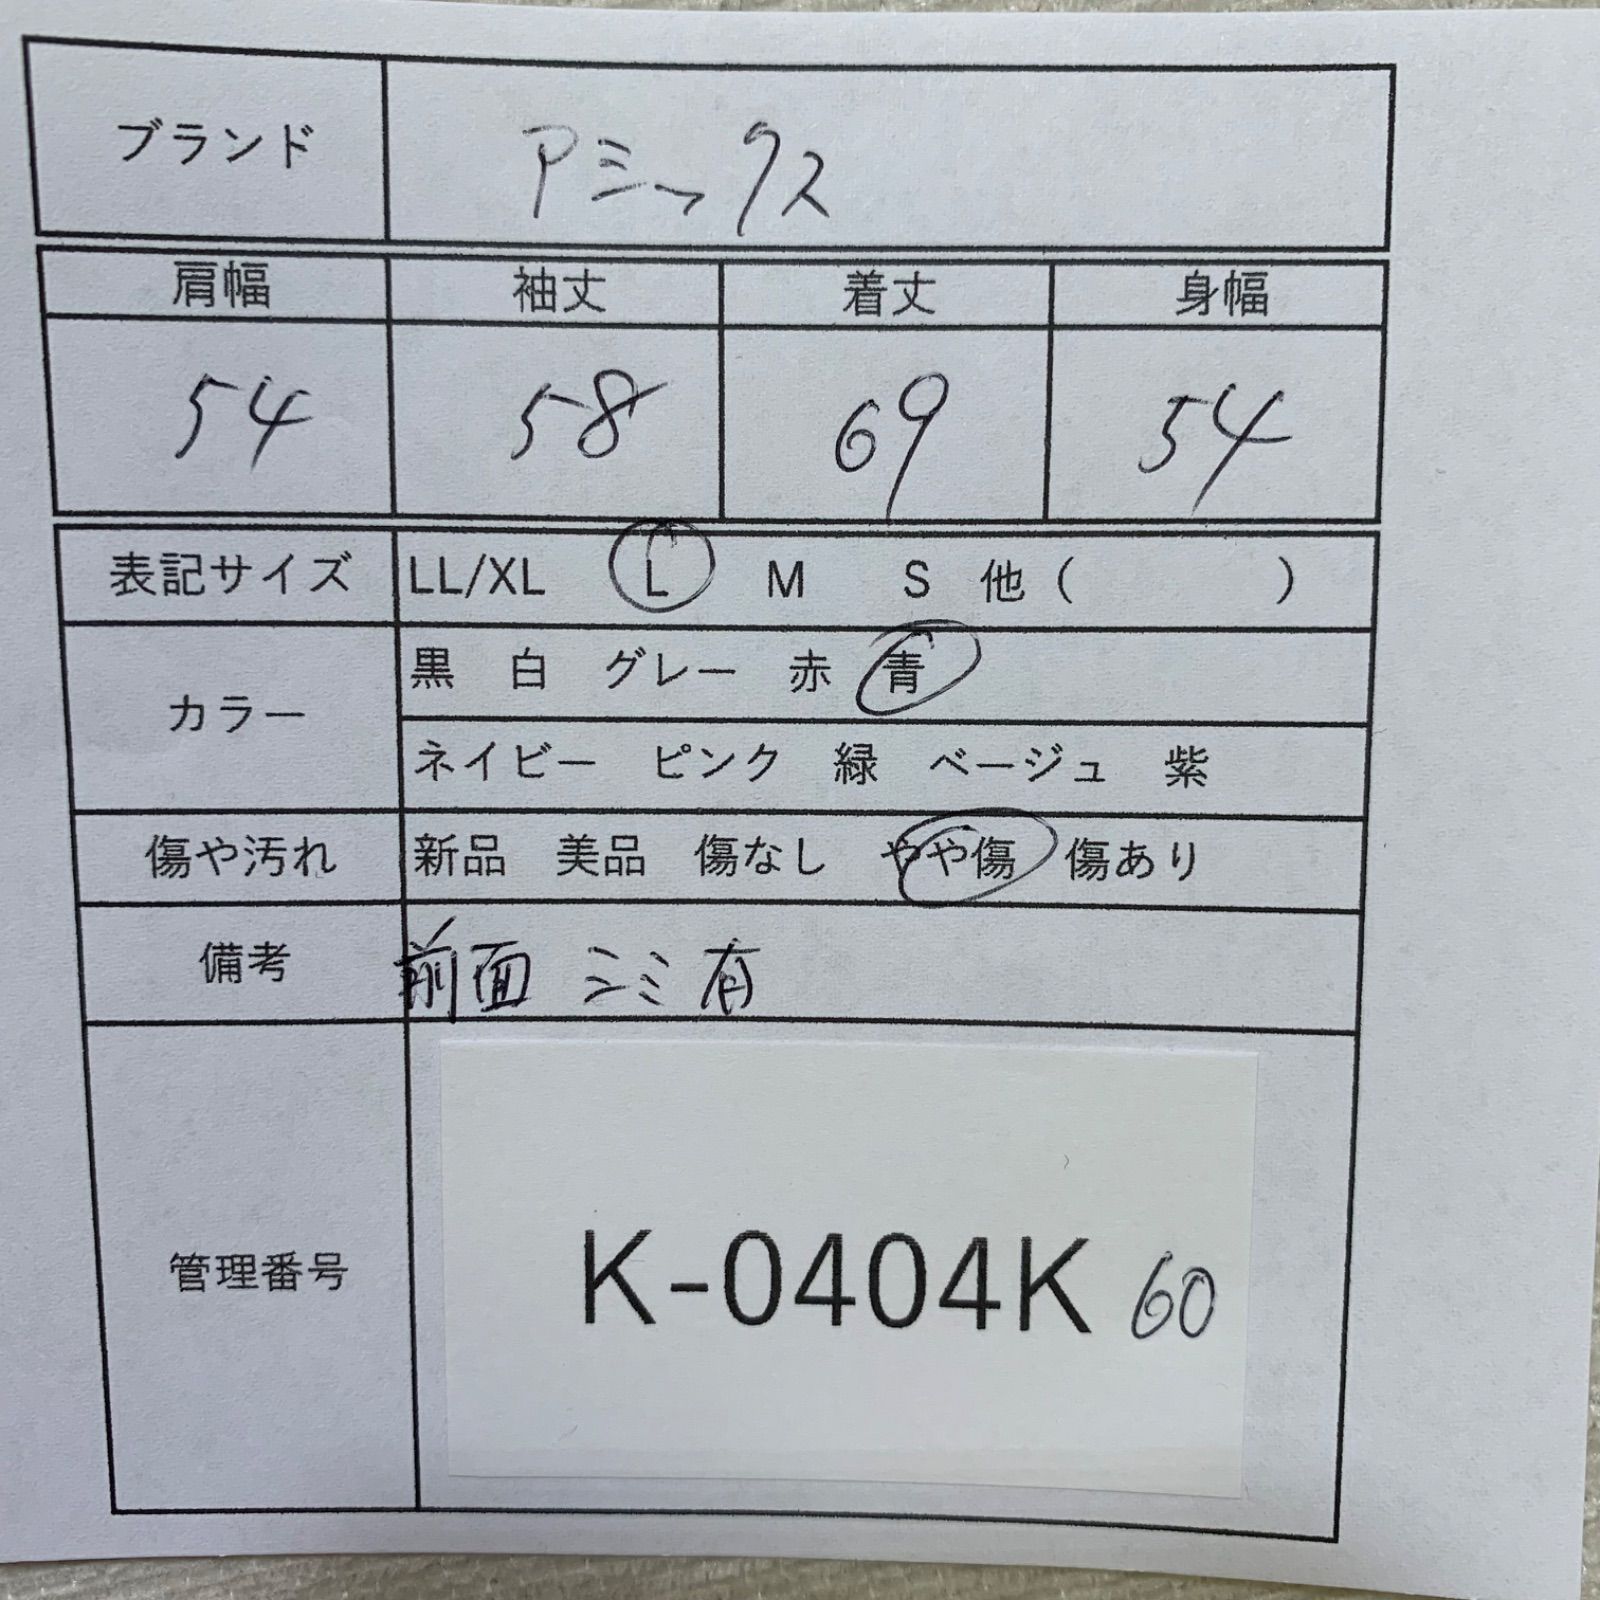 ブランド アミックス
肩幅 袖丈 着丈 身幅
54 58 69 54
表記サイズ LL/XL L M S 他 ( )
カラー 黒 白 グレー 赤 青
ネイビー ピンク 緑 ベージュ 紫
傷や汚れ 新品 美品 傷なし やや傷 傷あり
備考 前面 シミ 有
管理番号 K-0404K 60